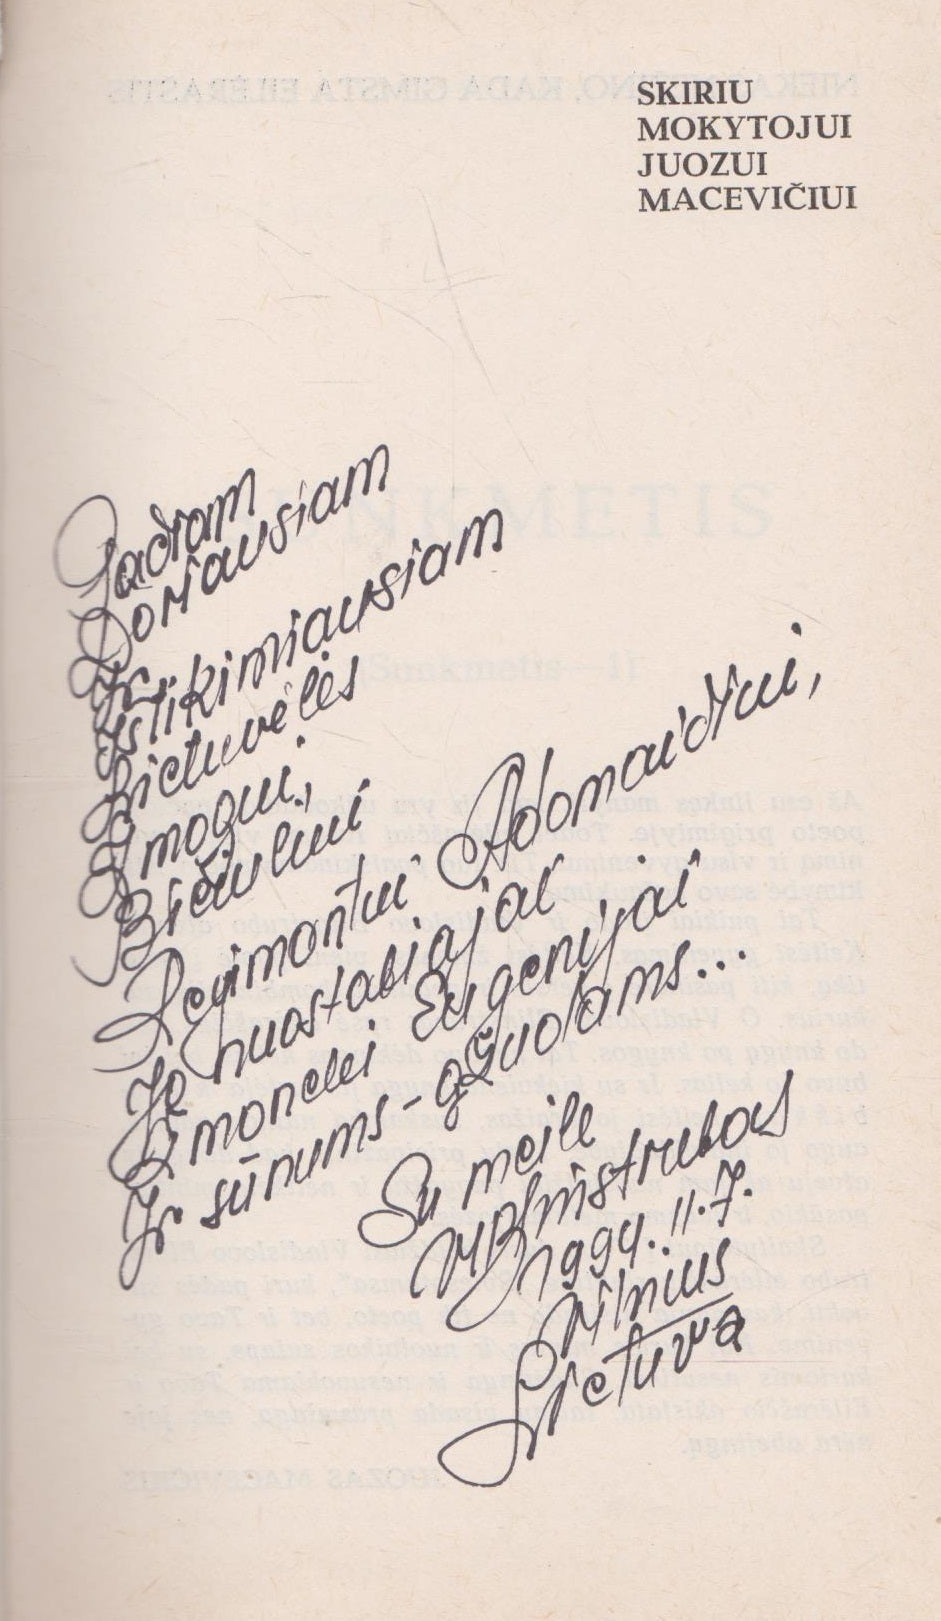 SKIRIU
MOKYTOJUI
JUOZUI
MACEVIČIUI
Gadram
Doriausiam
Ir
Ištikimiausiam
Lietuvėlės
Žmogui,
Bičiuliui
Regimantui Adomaičiui,
Jo nuostabiajai
Žmonelei Eugenijai
Ir sūnums - ąžuolams...
Su meile
1994.11.7.
Vilnius
Lietuva